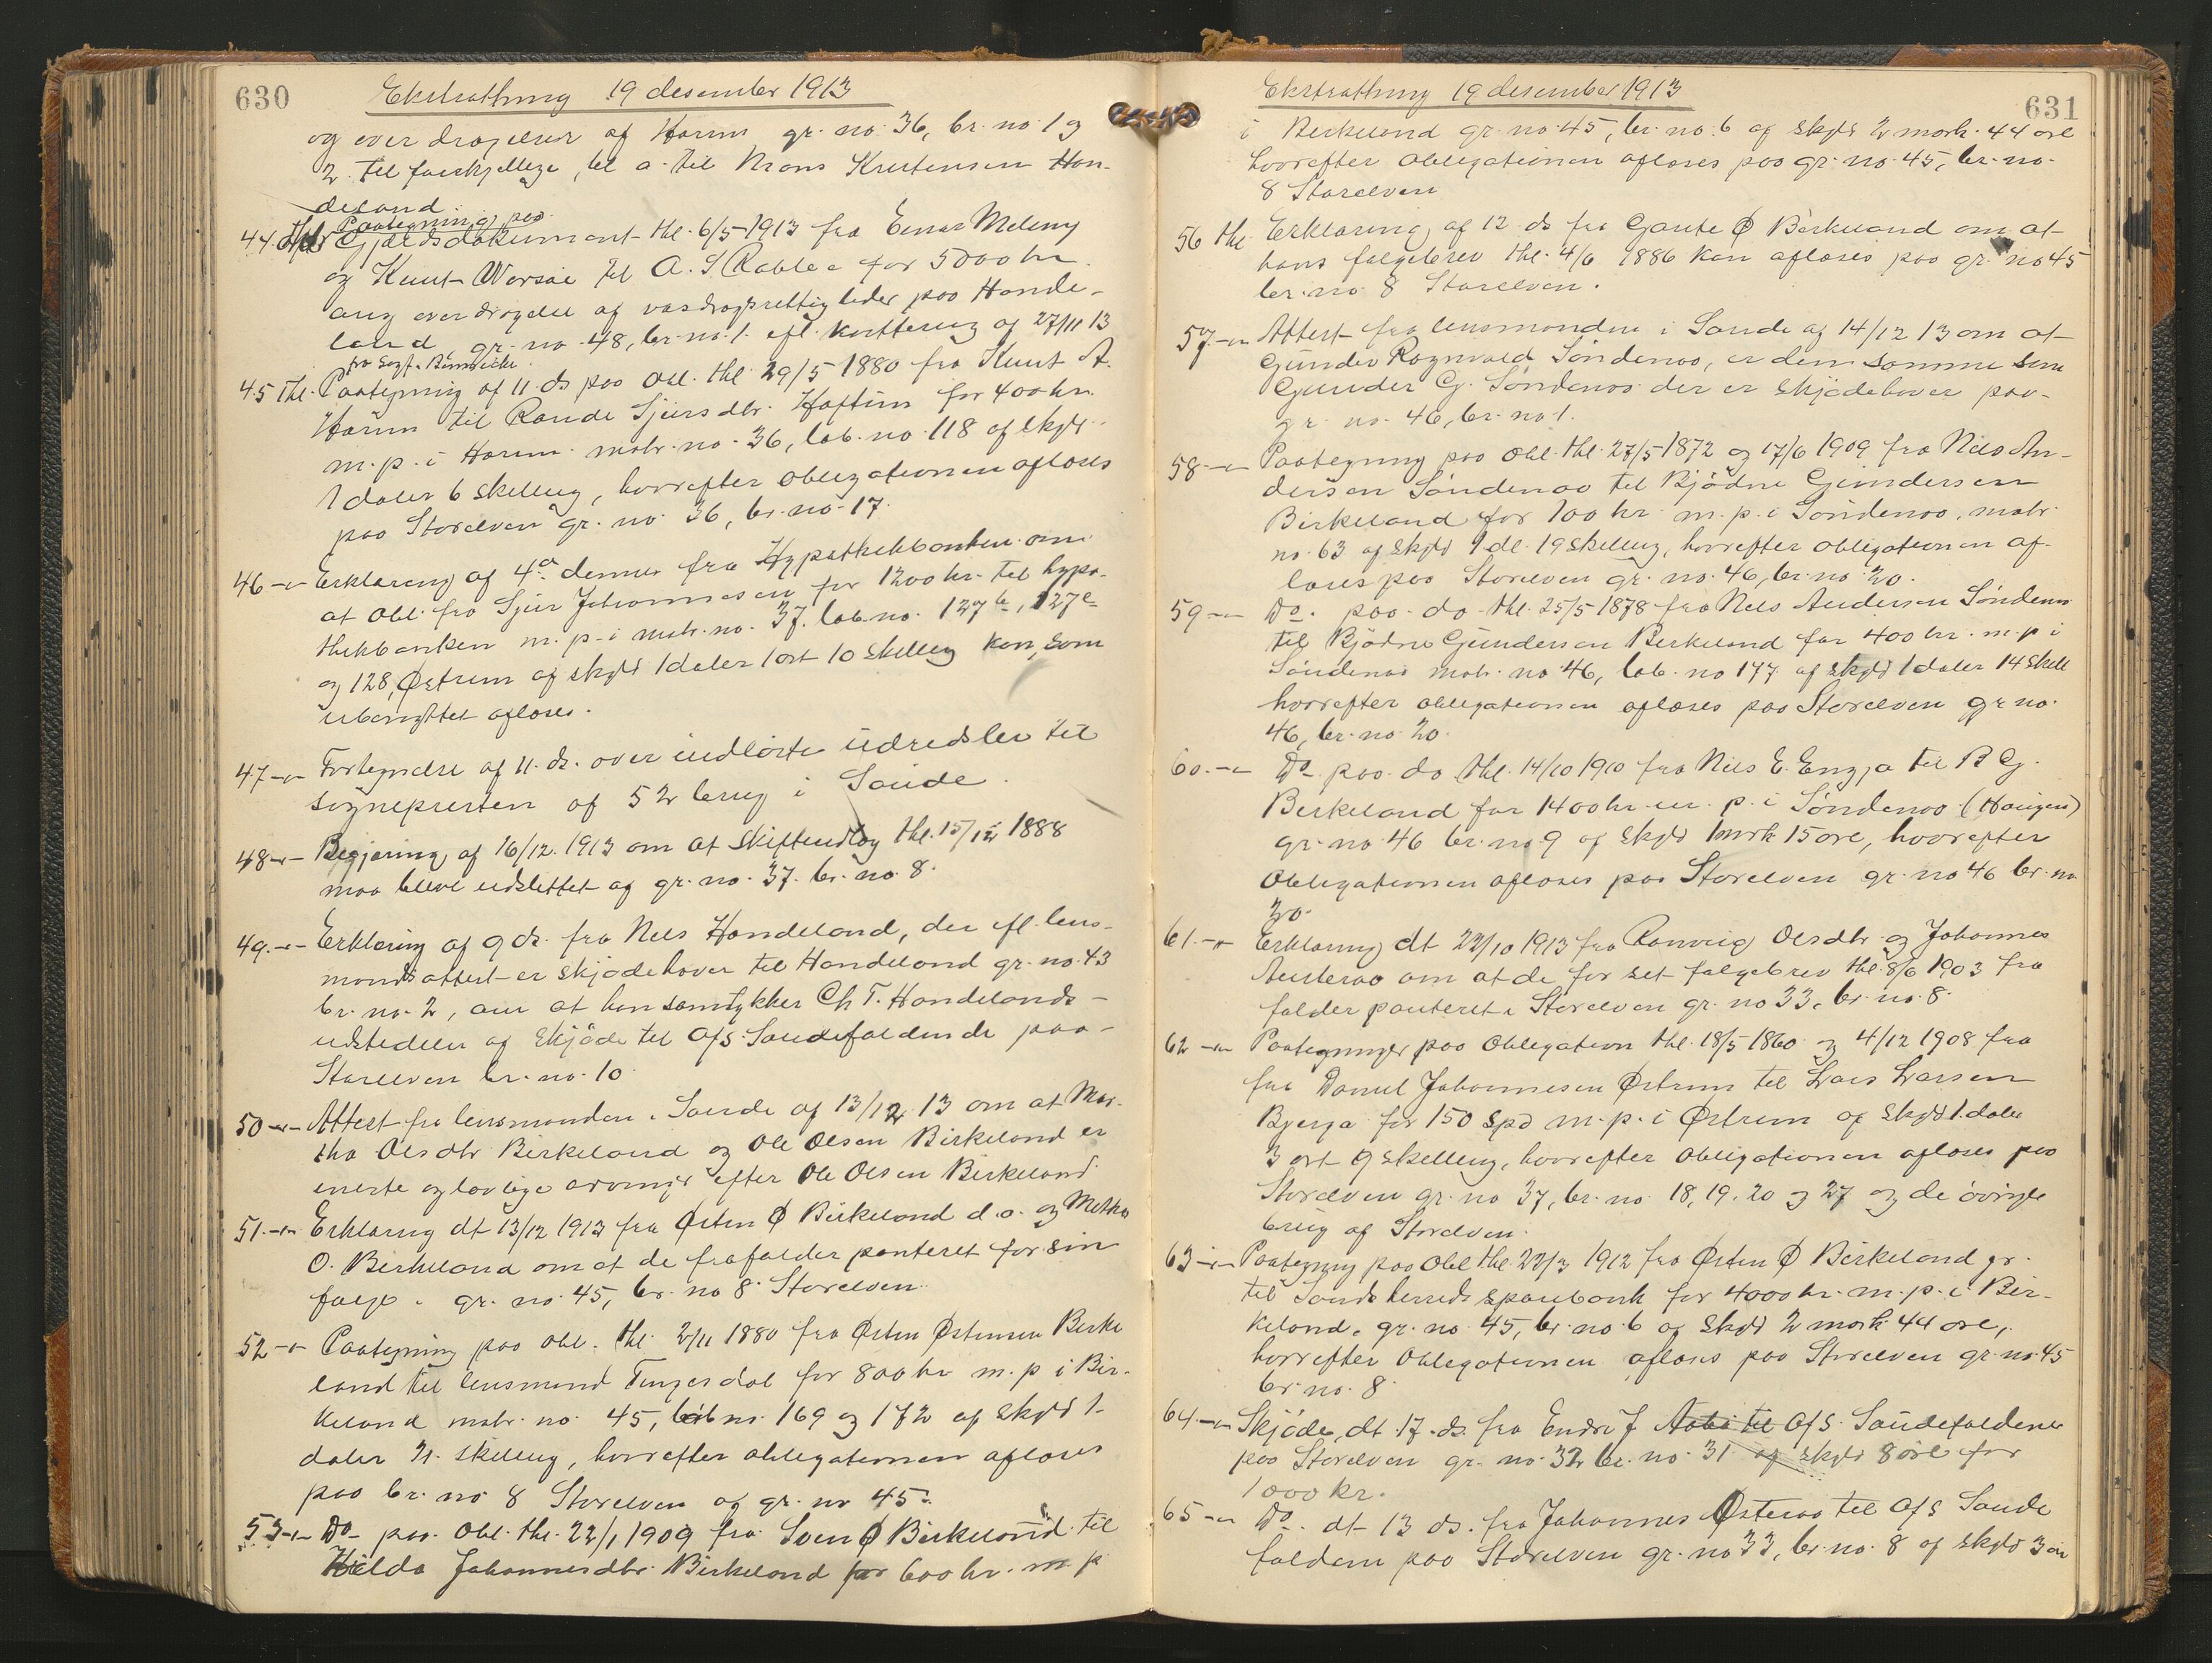 630
Ekstrathing 19 desember 1913
og overdragelser af Harim gr. no. 36, br. no. 1 og
2 til forskjellige, bl. a. til Mons Kristensen Han-
deland.
Paategning paa
44. thl. Gjældsdokument thl. 6/5 1913 fra Einar Meling
og Knut Worsøe til A. S Rabbe for 5000 kr
ang overdragelse af vasdragsrettigheder paa Hande-
land, gr. no. 48, br. no. 1. efl. kvittering af 27/11 13
fra Sagf. Bennecke
45 thl. Paategning af 11 ds paa Obl. thl. 29/5 1880 fra Knut A.
Harim til Rande Sjursdtr. Haftun for 400 kr.
m. p. i Harim matr. no. 36, løb. no. 118 af skyld
1 daler 6 skelling, hvorefter obligationen afloses
paa Storelven gr. no. 36, br. no. 17.
46 -"- Erklæring af 4de dennes fra Hypothekbanken om
at Obl. fra Sjur Johannesen for 1200 kr. til hypo-
thekbanken m. p. i matr. no. 37. løb. no. 127b, 127c
og 128, Østrem af skyld 1 daler 1 ort 10 skelling kan, som
ubenyttet afloses.
47 -"- Fortegnelse af 11. ds. over indløste udredsler til
sognepresten af 52 brug i Saude.
48 -"- Begjæring af 16/12. 1913 om at skifteudlæg thl. 15/12 1888
maa blive udslettet af gr. no. 37. br. no. 8.
49. -"- Erklæring af 9 ds. fra Nils Handeland, der efl. lens-
mands attest er skjødehaver til Handeland gr. no. 43
br. no. 2, om at han samtykker Ch T. Handelands
udstedelse af skjøde til A/S. Saudefaldende paa
Storelven br. no. 10.
50 -"- Attest fra lensmanden i Saude af 13/12 13 om at Mar-
tha Olsdtr Birkeland og Ole Olsen Birkeland er
eneste og lovlige arvinger efter Ole Olsen Birkeland
51. -"- Erklæring dt 13/12 1913 fra Østen Ø Birkeland d. o. og Metha
O. Birkeland om at de frafalder panteret for sin
folge i gr. no. 45, br. no 8 Storelven.
52 -"- Paategning paa obl. thl. 2/11 1880 fra Østen Østensen Birke
land til lensmand Tengesdal for 800 kr m. p i Bir-
keland matr. no. 45, løb no. 169 og 172 af skyld 1
daler 21. skelling, hvorefter obligationen afloses
paa br. no 8 Storelven af gr. no 45.
53 -"- Do paa Obl. thl. 22/1 1909 fra Sven Ø Birkeland til
Hilda Johannesdtr. Birkeland for 600 kr. m. p
631
Ekstrathing 19 desember 1913
i Birkeland gr. no. 45, br. no. 6 af skyld 2 mark. 44 øre
hvorefter obligationen afloses paa gr. no. 45, br. no.
8 Storelven
56 thl. Erklæring af 12 ds fra Gaute Ø Birkeland om at
hans folgebrev thl. 4/6 1886 kan afloses paa gr. no 45
br. no. 8 Storelven.
57 -"- Attest fra lensmanden i Saude af 14/12 13 om at
Gunder Ragnvald Søndenaa, er den samme som
Gunder G. Søndenaa der er skjødehaver paa
gr. no. 46, br. no 1.
58. -"- Paategning paa obl. thl. 27/5 1872 og 17/6 1909 fra Nils An-
dersen Søndenaa til Bjødne Gundersen
Birkeland for 100 kr. m. p. i Søndenaa. matr.
no. 63 af skyld 1 dl. 19 skelling, hvorefter obligationen af
loses paa Storelven gr. no. 46, br. no 20.
59 -"- Do. paa do thl. 25/5 1878 fra Nils Andersen Søndenaa
til Bjødne Gundersen Birkeland for 400 kr. m. p. i
Søndenaa matr. no 46, løb. no 177 af skyld 1 daler 14 skell
hvorefter obligationen afloses paa Storelven gr no.
46, br. no. 20.
60. -"- Do paa do thl. 14/10 1910 fra Nils E. Engja til B G.
Birkeland for 1400 kr m. p. i Søndenaa (Haugen)
gr. no 46 br. no 9 af skyld 1 mrk 15 øre, hvorefter
Obligationen afloses paa Storelven gr. no 46 br. no
20.
61. -"- Erklæring dt 22/10 1913 fra Ranveig Olsdtr. og Johannes
Austeraa om at de for set folgebrev thl. 8/6 1903 fra
falder panteret i Storelven gr. no 33, br. no. 8.
62 -"- Paategninger paa Obligation thl. 18/5 1860 og 4/12 1908 fra
fra Daniel Johannesen Østrem til Lars Larsen
Bjerga for 150 spd m. p. i Østrem af skyld 1. daler
3 ort 9 skelling, hvorefter obligationen afloses paa
Storelven gr. no 37, br. no. 18, 19. 20 og 27 og de øvrige
brug af Storelven.
63 -"- Paategning paa Obl thl. 22/3 1912 fra Østen Ø Birkeland gr.
til Sands herreds sparebank for 4000 kr. m. p. i Bir-
keland. gr. no. 45, br. no. 6 af skyld 2 mark 44 øre,
hvorefter Obligationen afloses paa Storelven gr no 45
br. no. 8
64 -"- Skjøde, dt. 17. ds. fra Endre J Aabø til A/S. Saudefaldene
paa Storelven gr. no. 32 br. no. 31 af skyld 8 øre for
1000 kr.
65 -"- Do. dt 13 ds. fra Johannes Østeraa til A/S Saude
faldene paa Storelven gr. no 33, br. no. 8 af skyld 3 øre